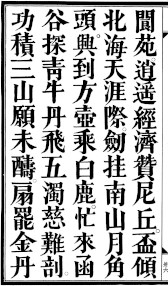 閬苑逍遙經濟贊尼丘盃傾
北海天涯際劍挂南山月角
頭興到方壺乘白鹿忙來函
谷探靑牛丹飛五濁慈難剖
功積三山願未醻扇罷金丹